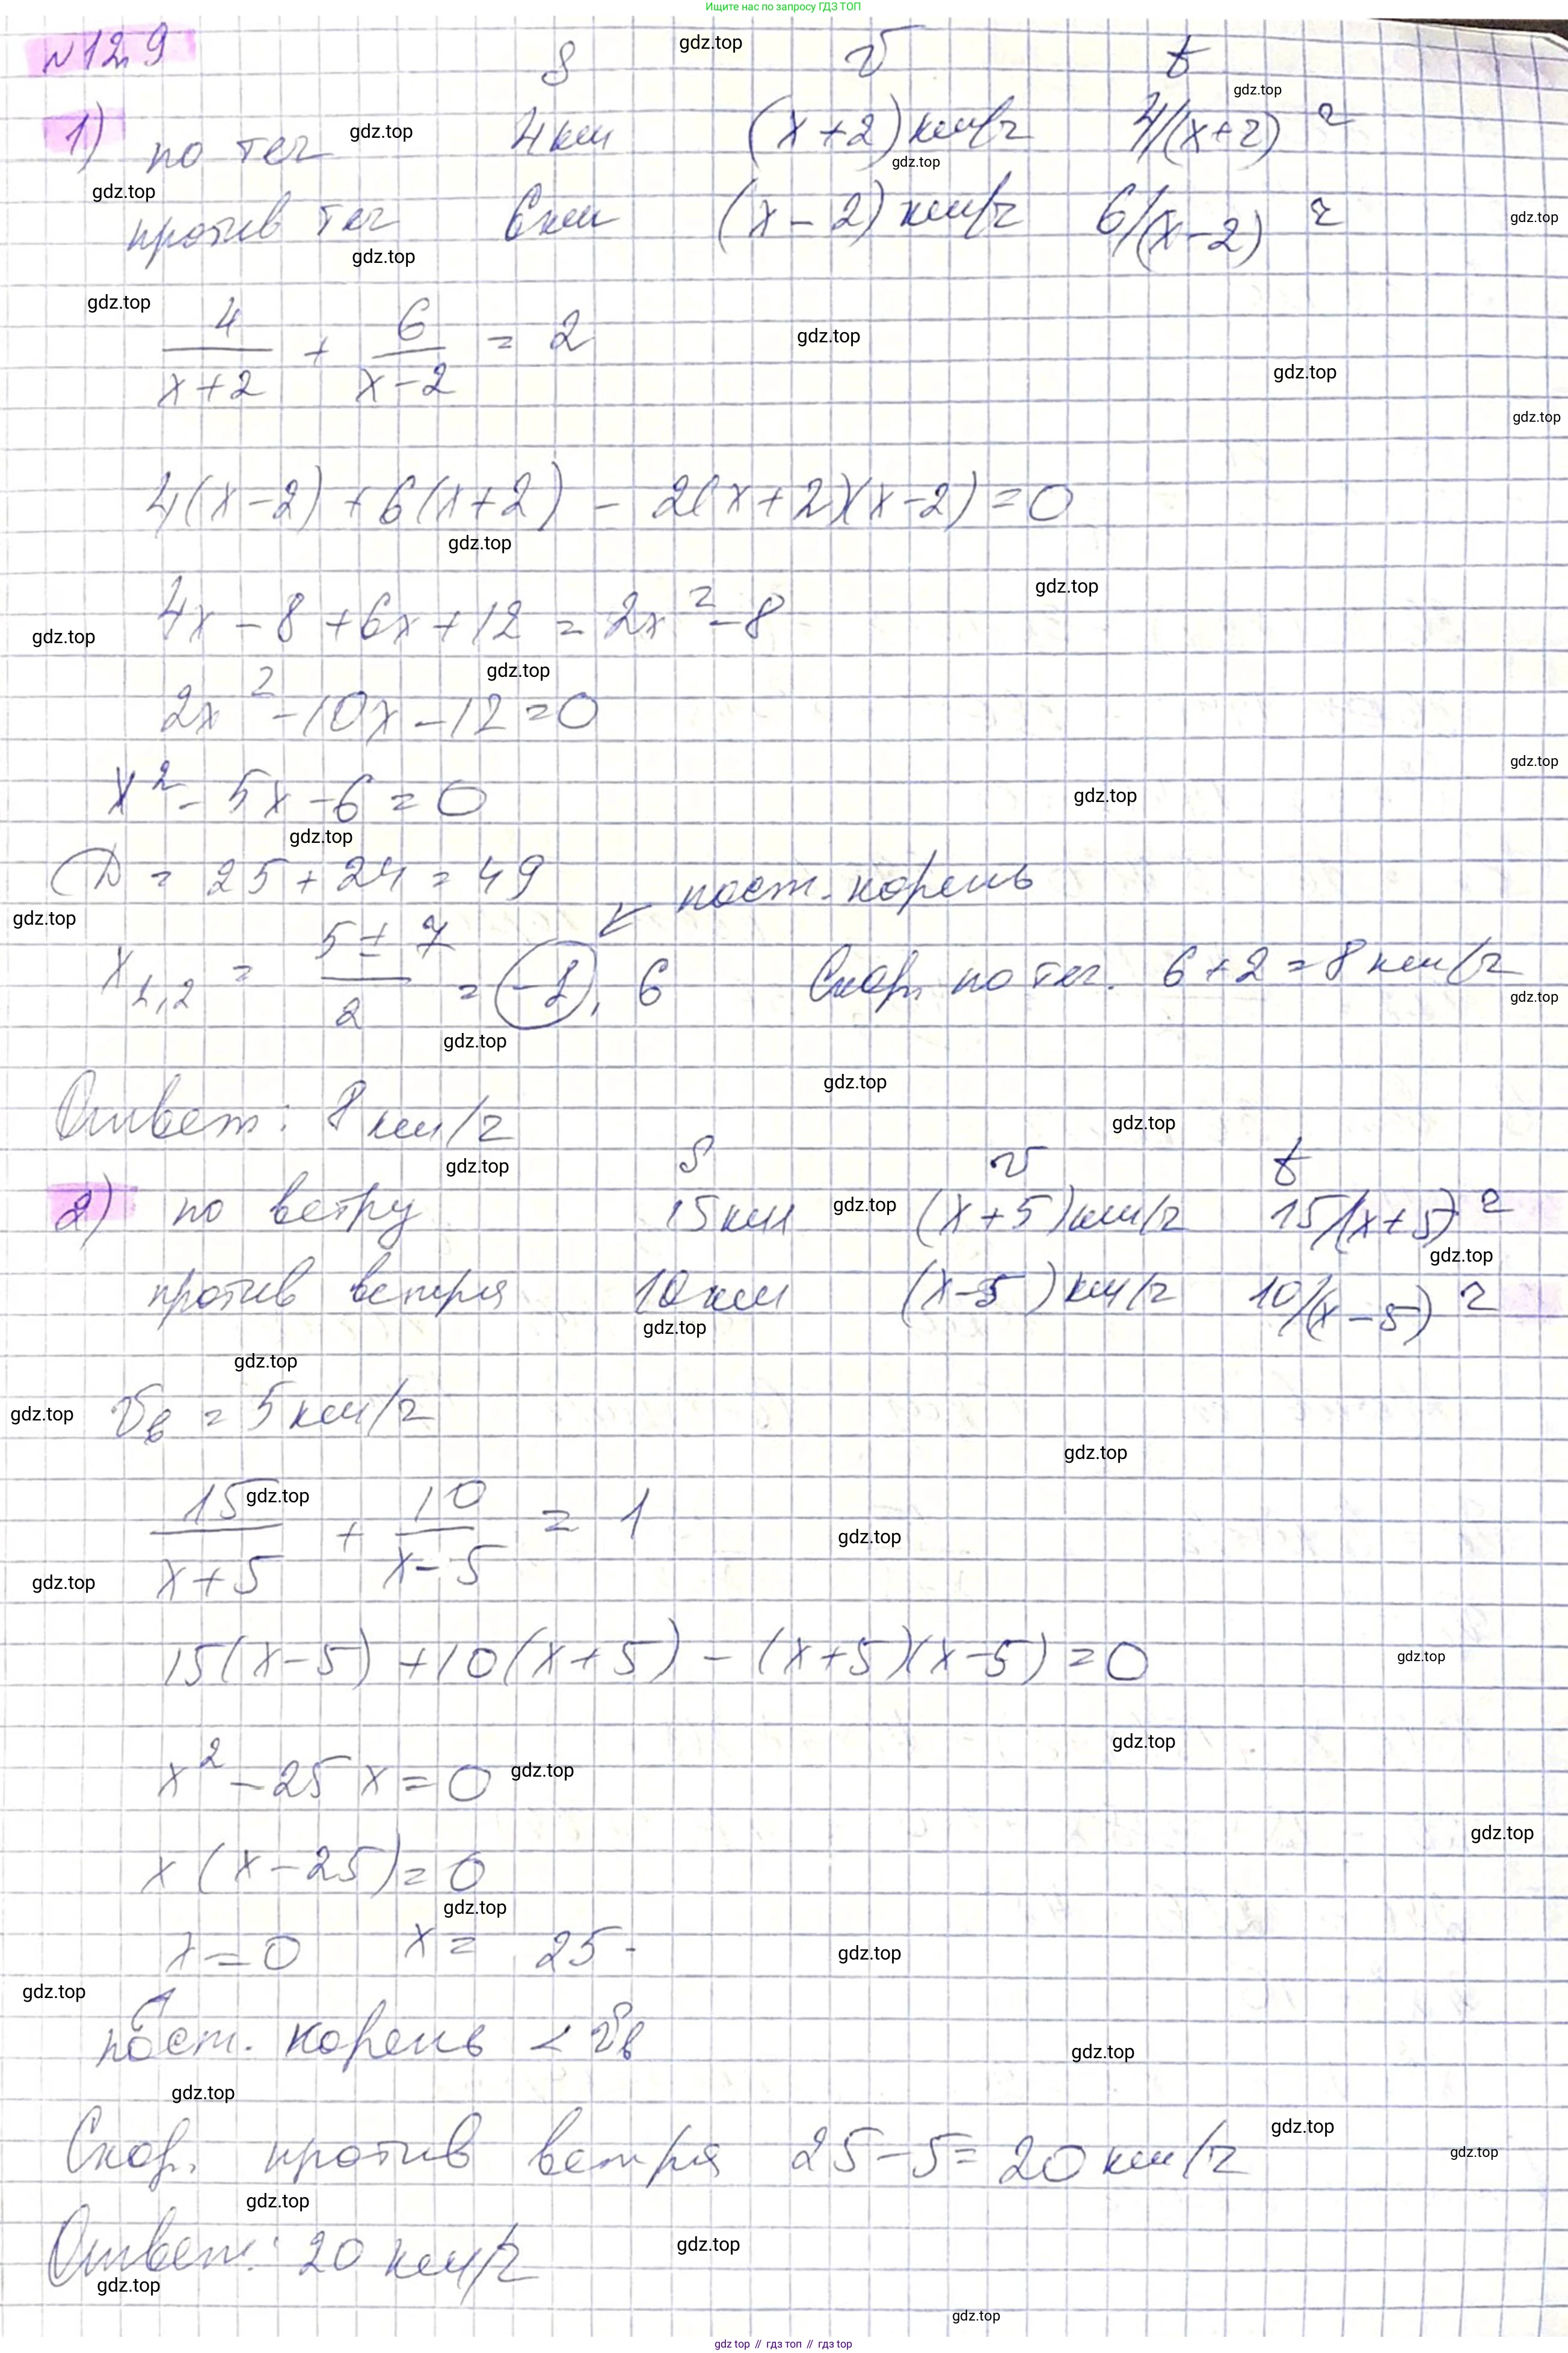 Ищите нас по запросу ГДЗ ТОП
№12.9
S v t
1) по теч 4 км (x+2) км/ч 4/(x+2) ч
против теч 6 км (x-2) км/ч 6/(x-2) ч
4/(x+2) + 6/(x-2) = 2
4(x-2) + 6(x+2) - 2(x+2)(x-2) = 0
4x - 8 + 6x + 12 = 2x² - 8
2x² - 10x - 12 = 0
x² - 5x - 6 = 0
D = 25 + 24 = 49
пост. корень
x₁,₂ = (5 ± 7)/2 = -1, 6 Скор. по теч. 6 + 2 = 8 км/ч
Ответ: 8 км/ч
S v t
2) по ветру 15 км (x+5) км/ч 15/(x+5) ч
против ветра 10 км (x-5) км/ч 10/(x-5) ч
vв = 5 км/ч
15/(x+5) + 10/(x-5) = 1
15(x-5) + 10(x+5) - (x+5)(x-5) = 0
x² - 25x = 0
x(x-25) = 0
x = 0 x = 25
пост. корень < vв
Скор. против ветра 25 - 5 = 20 км/ч
Ответ: 20 км/ч
gdz.top
gdz top // гдз топ // gdz top